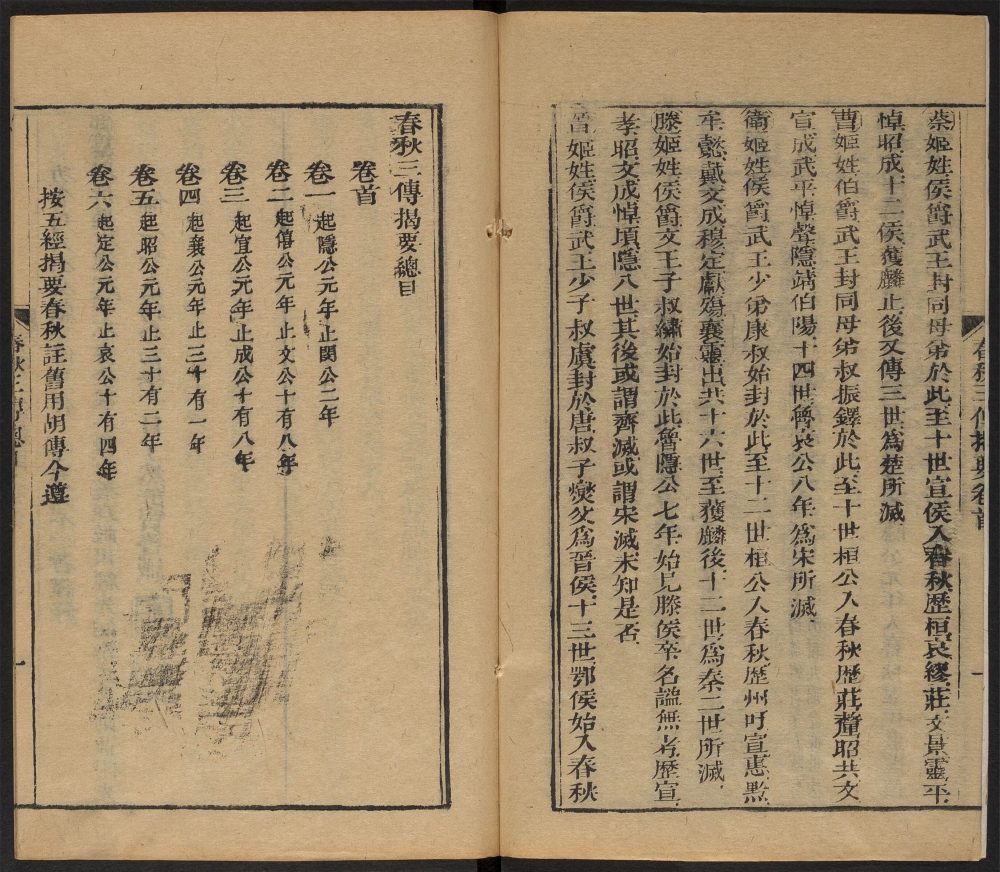 蔡姬姓侯爵武王封同母弟於此至十世宣侯入春秋歷桓哀繆莊文景靈平
悼昭成十二侯獲麟止後又傳三世爲楚所滅
曹姬姓伯爵武王封同母弟叔振鐸於此至十世桓公入春秋歷莊釐昭共文
宣成武平悼聲隱靖伯陽十四世魯哀公八年爲宋所滅
衞姬姓侯爵武王少弟康叔始封於此至十二世桓公入春秋歷州吁宣惠黔
牟懿戴文成穆定獻殤襄靈出共十六世至獲麟後十二世爲秦二世所滅
滕姬姓侯爵文王子叔繡始封於此魯隱公七年始見滕侯卒名諡無考歷宣
孝昭文成悼頃隱八世其後或謂齊滅或謂宋滅未知是否
晉姬姓侯爵武王少子叔虞封於唐叔子燮父爲晉侯十三世鄂侯始入春秋
春秋三傳揭要卷首
一
春秋三傳揭要總目
卷首
卷一起隱公元年止閔公二年
卷二起僖公元年止文公十有八年
卷三起宣公元年止成公十有八年
卷四起襄公元年止三十有一年
卷五起昭公元年止三十有二年
卷六起定公元年止哀公十有四年
按五經揭要春秋註舊用胡傳今遵
春秋三傳總目
一